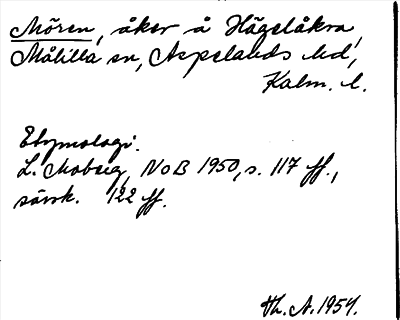 Mören, åker å Hägelåkra,
Målilla sn, Aspelands hd,
Kalm. l.
Etymologi.
L. Moberg, NoB 1950, s. 117 ff.,
särsk. 122 ff.
Th. A. 1954.